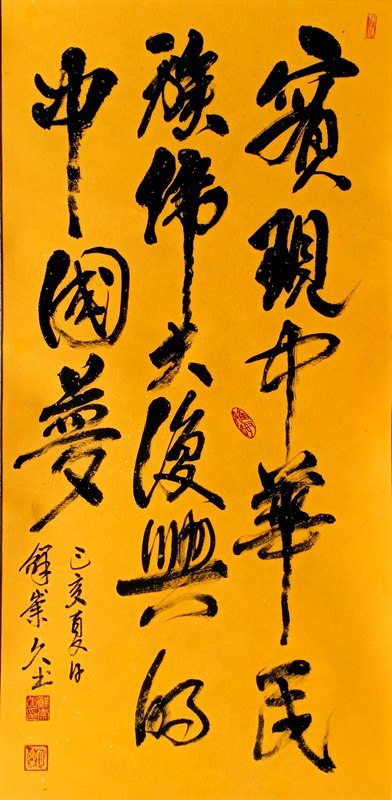 實現中華民
族偉大復興的
中國夢
己亥夏日
解久书